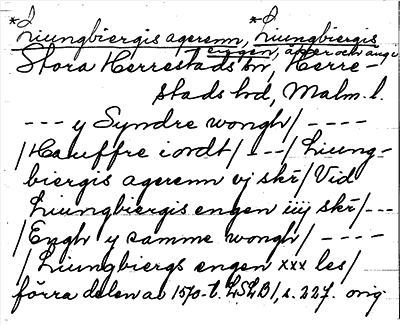 *Liungbiergis agerenn, *Liungbiergis
engen, åker och äng i
Stora Herrestads sn, Herre-
stads hd, Malm. l.
--- y Syndre wongh/ ----
/Hauffre i ordt/ ---/ Liung-
biergis agerenn vj skr/ Vid
Liungbiergis engen iiij skr/---
/Engh y samme wongh/ ----
/Liungbiergs engen xxx les/
förra delen av 1570-t. LSLB/, s. 227. orig